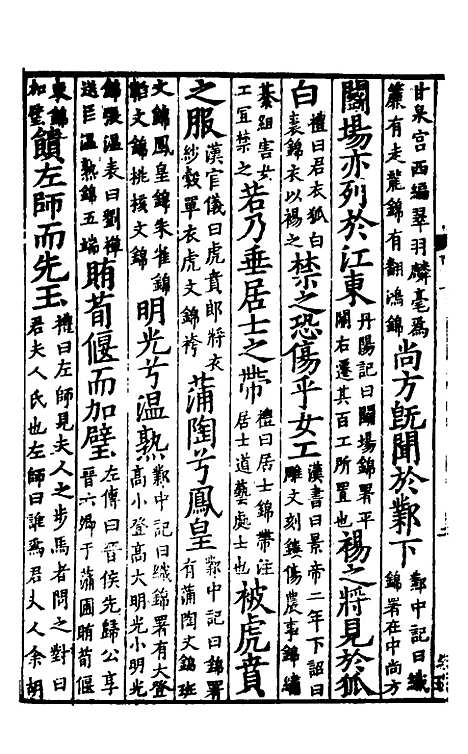 甘泉宮西編翠羽麟毫爲
簾有走龍錦有翻鴻錦
尚方旣聞於鄴下
鄴中記曰織
錦署在中尚方
闘場亦列於江東
丹陽記曰闘場錦署平
關右遷其百工所置也
裼之將見於狐
白
禮曰君衣狐白
裘錦衣以裼之
禁之恐傷乎女工
漢書曰景帝二年下詔曰
雕文刻鏤傷農事錦繡
纂組害女
工宜禁之
若乃垂居士之帶
禮曰居士錦帶注
居士道藝處士也
被虎賁
之服
漢官儀曰虎賁郎將衣
紗縠單衣虎文錦袴
蒲陶兮鳳皇
鄴中記曰錦署
有蒲陶文錦班
文錦鳳皇錦朱雀錦
韜文錦桃核文錦
明光兮溫熟
鄴中記曰織錦署有大登
高小登高大明光小明光
錦張溫表曰劉禪
送臣溫熟錦五端
賄荀偃而加璧
左傳曰晉侯先歸公享
晉六卿于蒲圃賄荀偃
束錦
加璧
饋左師而先玉
禮曰左師見夫人之步馬者問之對曰
君夫人氏也左師曰誰爲君夫人余胡